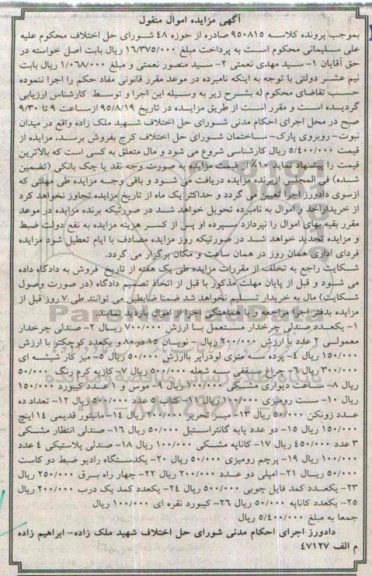 آگهی مزایده اموال منقول
بموجب پرونده کلاسه ۹۵۰۸۱۵ صادره از حوزه ۴۸ شورای حل اختلاف محکوم علیه
علی سلیمانی محکوم است به پرداخت مبلغ ۱۶/۳۷۵/۰۰۰ ریال بابت اصل خواسته در
حق آقایان ۱- سید مهدی نعمتی ۲- سید منصور نعمتی و مبلغ ۱/۰۶۸/۰۰۰ ریال بابت
نیم عشر دولتی با توجه به اینکه نامبرده در موعد مقرر قانونی مفاد حکم را اجرا ننموده
حسب تقاضای محکوم له بشرح زیر به وسیله این اجرا و توسط کارشناس ارزیابی
گردیده است و مقرر است از طریق مزایده در تاریخ ۹۵/۸/۱۹ ازساعت ۹ تا ۹/۳۰
صبح در محل اجرای احکام مدنی شورای حل اختلاف شهید ملک زاده واقع در میدان
نبوت- روبروی پارک- ساختمان شورای حل اختلاف کرج بفروش برسد، مزایده از
قیمت ۵/۴۰۰/۰۰۰ ریال کارشناسی شروع می شود و مال متعلق به کسی است که بالاترین
قیمت را پیشنهاد نماید ۱۰٪ از قیمت مزایده به صورت وجه نقد یا چک بانکی (تضمین
شده) فی المجلس از برنده مزایده دریافت می شود و باقی وجه مزایده طی مهلتی که
ازسوی دادورز اجرا تعیین می گردد و حداکثر یک ماه از تاریخ مزایده تجاوز نخواهد کرد
از خریدار اخذ و اموال به نامبرده تحویل خواهد شد در صورتیکه برنده مزایده در موعد
مقرر بقیه بهای اموال را نپردازد سپرده او پس از کسر هزینه مزایده به نفع دولت ضبط
و مزایده تجدید خواهد شد در صورتیکه روز مزایده مصادف با ایام تعطیل شود مزایده
فردای اداری همان روز در همان ساعت و مکان برگزار می گردد.
شکایت راجع به تخلف از مقررات مزایده طی یک هفته از تاریخ فروش به دادگاه داده
می شود و قبل از پایان مهلت مذکور یا قبل از اتخاذ تصمیم دادگاه (در صورت وصول
شکایت) مال به خریدار تسلیم نخواهد شد ضمنا طالبین می توانند طی ۷ روز قبل از
مزایده بدفتر اجرا مراجعه تا با هماهنگی اجرا از اموال بازدید نمایند.
۱- یکعدد صندلی چرخدار مستعمل با ارزش ۷۰۰/۰۰۰ ریال ۲- صندلی چرخدار
معمولی ۲ عدد با ارزش ۲۰۰/۰۰۰ ریال
۱۵۰/۰۰۰ ریال ۴- پرده سه متری لودراپر باارزش ۵۰/۰۰۰ ریال ۵- میز کار شیشه ای
۳۰۰/۰۰۰ ریال ۶- چراغ سقفی سه شعله ۵۰۰/۰۰۰ ریال ۷- کازیه کرم رنگ ۵۰/۰۰۰
ریال ۸- ساعت دیواری
ریال ۱۰- ست رومیزی ۱۰۰/۰۰۰ ریال ۱۱- کتاب ۵ عدد ۵۰۰/۰۰۰ ریال ۱۲- تعداد ده
عدد زونکن ۵۰/۰۰۰ ریال ۱۳- میز تحریر ۲۰۰/۰۰۰ ریال ۱۴- مانیتور قدیمی ۱۴ اینچ
۱۵۰/۰۰۰ ریال ۱۵- دو عدد پایه گانتراستیل ۵۰/۰۰۰ ریال ۱۶- صندلی انتظار مشکی
۳ عدد ۴۵۰/۰۰۰ ریال ۱۷- کاناپه مشکی ۱۰۰/۰۰۰ ریال ۱۸- صندلی پلاستیکی ۴ عدد
۱۰۰/۰۰۰ ریال ۱۹- پرچم رومیزی ۵۰/۰۰۰ ریال ۲۰- یکدستگاه رادیو ضبط دو کاست
۵۰/۰۰۰ ریال ۲۱- آمپلی دو عدد ۲۰۰/۰۰۰ ریال ۲۲- چهار راه برق ۲۵۰/۰۰۰ ریال
۲۳- یکعدد کمد فایل چوبی ۵۰۰/۰۰۰ ریال ۲۴- یکعدد کمد یک درب ۲۰۰/۰۰۰ ریال
۲۵- یکعدد کاناپه ۵۰۰/۰۰۰ ریال ۲۶- کیبورد نقره ای ۱۰۰/۰۰۰ ریال
جمعا به مبلغ ۵/۴۰۰/۰۰۰ ریال
دادورز اجرای احکام مدنی شورای حل اختلاف شهید ملک زاده- ابراهیم زاده
م الف ۴۷۱۲۷